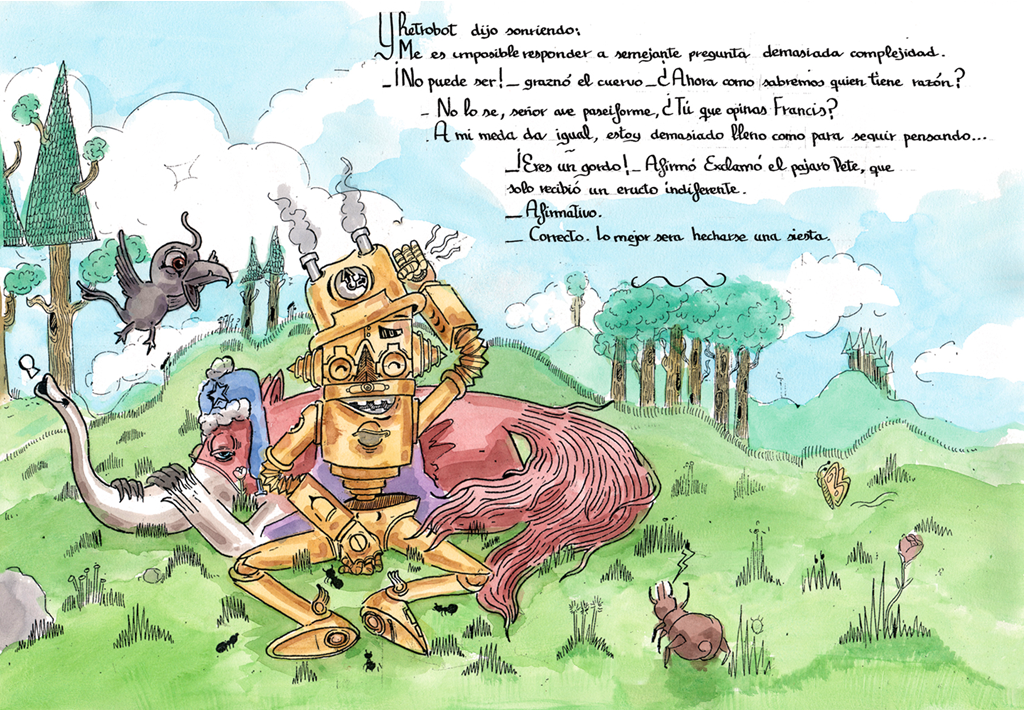 Y Retrobot dijo sonriendo:
Me es imposible responder a semejante pregunta demasiada complejidad.
_¡No puede ser!_ graznó el cuervo _¿Ahora como sabremos quien tiene razón?
- No lo se, señor ave paseiforme, ¿Tú que opinas Francis?
. A mi meda da igual, estoy demasiado lleno como para seguir pensando...
_¡Eres un gordo!_ Afirmó Exclamó el pajaro Pete, que
solo recibió un eructo indiferente.
_ Afirmativo.
_ Correcto. lo mejor sera hecharse una siesta.